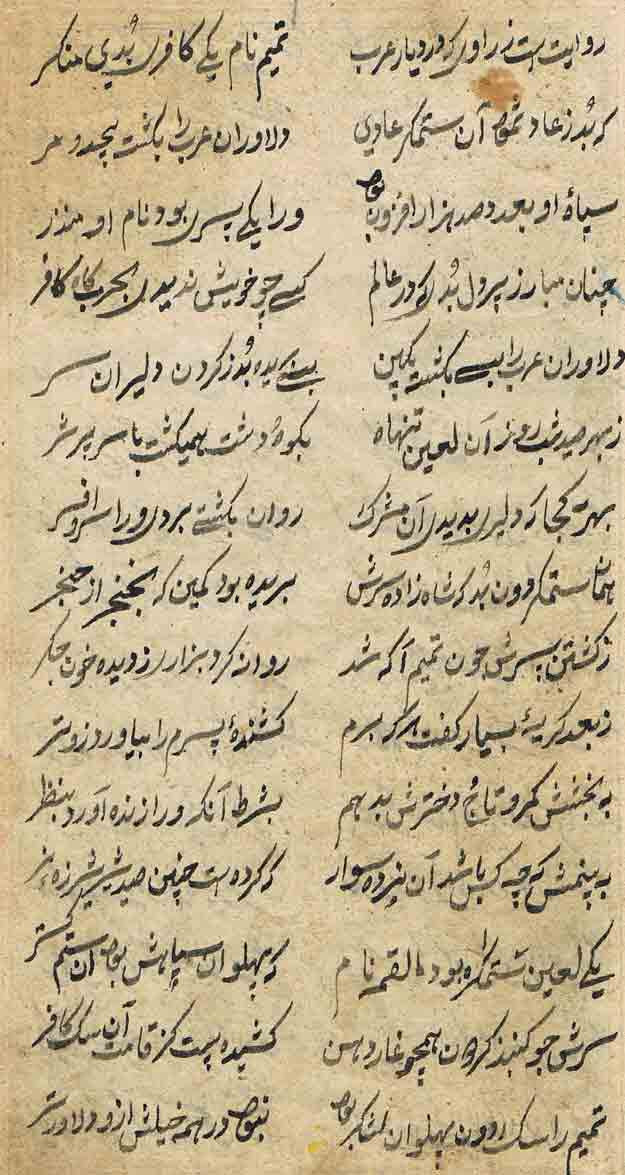 روایت است ز راوی که در دیار عرب تمیم نام یکی کافری بدی منکر
که بد ز عاد ثمود آن ستمگر عادی دلاوران عرب را بکشت بیحد و مر
سپاه او بعدد صد هزار افزون بود ورا یکی پسری بود نام او منذر
چنان مبارز پردل بد که در عالم کسی چو خویش ندیدی بحرب کافر
دلاوران عرب را بسی بکشت بکین بسی بریده بد ز گردن دلیران سر
ز بهر صید شب روز آن لعین تنها بکوه دشت همیکشت با سر پر شر
بهر کجا که دلیری بدیدی آن مشرک روان بکشتی بردی ورا سر و افسر
همان ستمگر دون بد که شاه زاده سرش بریده بود بکین که بخنجر از حنجر
ز کشتن پسرش چون تمیم آگه شد روان کرد بزاری ز دیده خون جگر
ز بعد گریهٔ بسیار گفت هر که برم کشندهٔ پسرم را بیاورد زوتر
به بخشش کمر و تاج دخترش بدهم بشرط آنکه ورا زنده آورد بنظر
به بینمش که چه کس باشد آن سوار که کرده است چنین صید شیر شرزه نر
یکی لعین ستمکاره بود علقمه نام که پهلوان سپاهش بود آن ستم گستر
سرش چو گنبد گردون همچو غار دهن کشیده پست کز قامت آن سگ کافر
تمیم را سگ دون پهلوان لشکر بود نبود در همه خیلش ازو دلاورتر